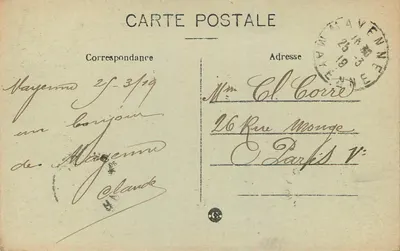 CARTE POSTALE
Correspondance
Mayenne 25/3/19
un bonjour
de Mayenne
Claude
Adresse
MAYENNE
MAYENNE
25-3
19
Mme Cl. Corre
26 Rue Monge
Paris Ve